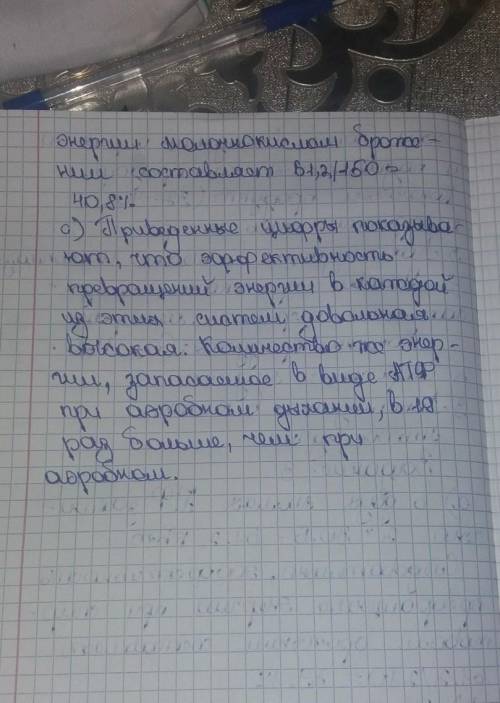 энергии молочнокислом броже-
нии составляет 61,2/150 =
40,8%.
с) Приведенные цифры показыва-
ют, что эффективность
превращений энергии в каждой
из этих систем довольная
высокая. Количество же энер-
гии, запасаемое в виде АТФ
при аэробном дыхании, в 19
раз больше, чем при
аэробном.